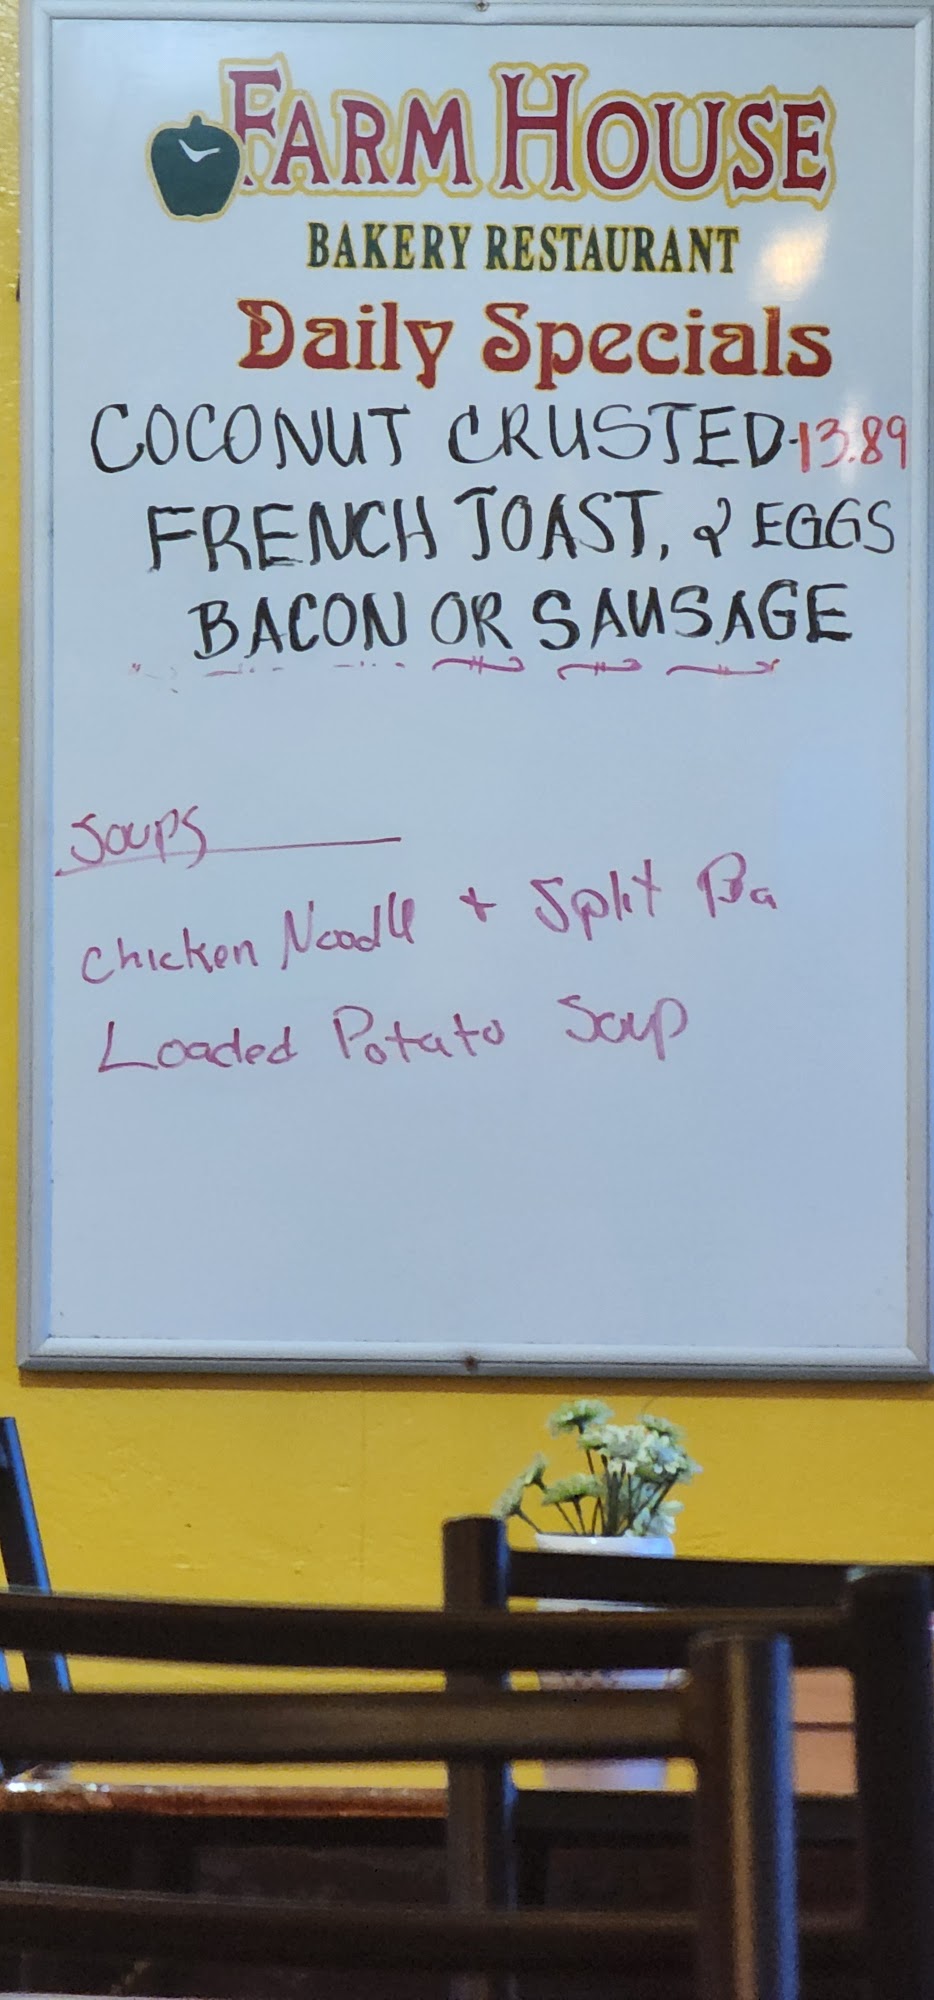 FARM HOUSE
BAKERY RESTAURANT
Daily Specials
COCONUT CRUSTED-13.89
FRENCH TOAST, 2 EGGS
BACON OR SAUSAGE
Soups
Chicken Noodle + Split Pea
Loaded Potato Soup